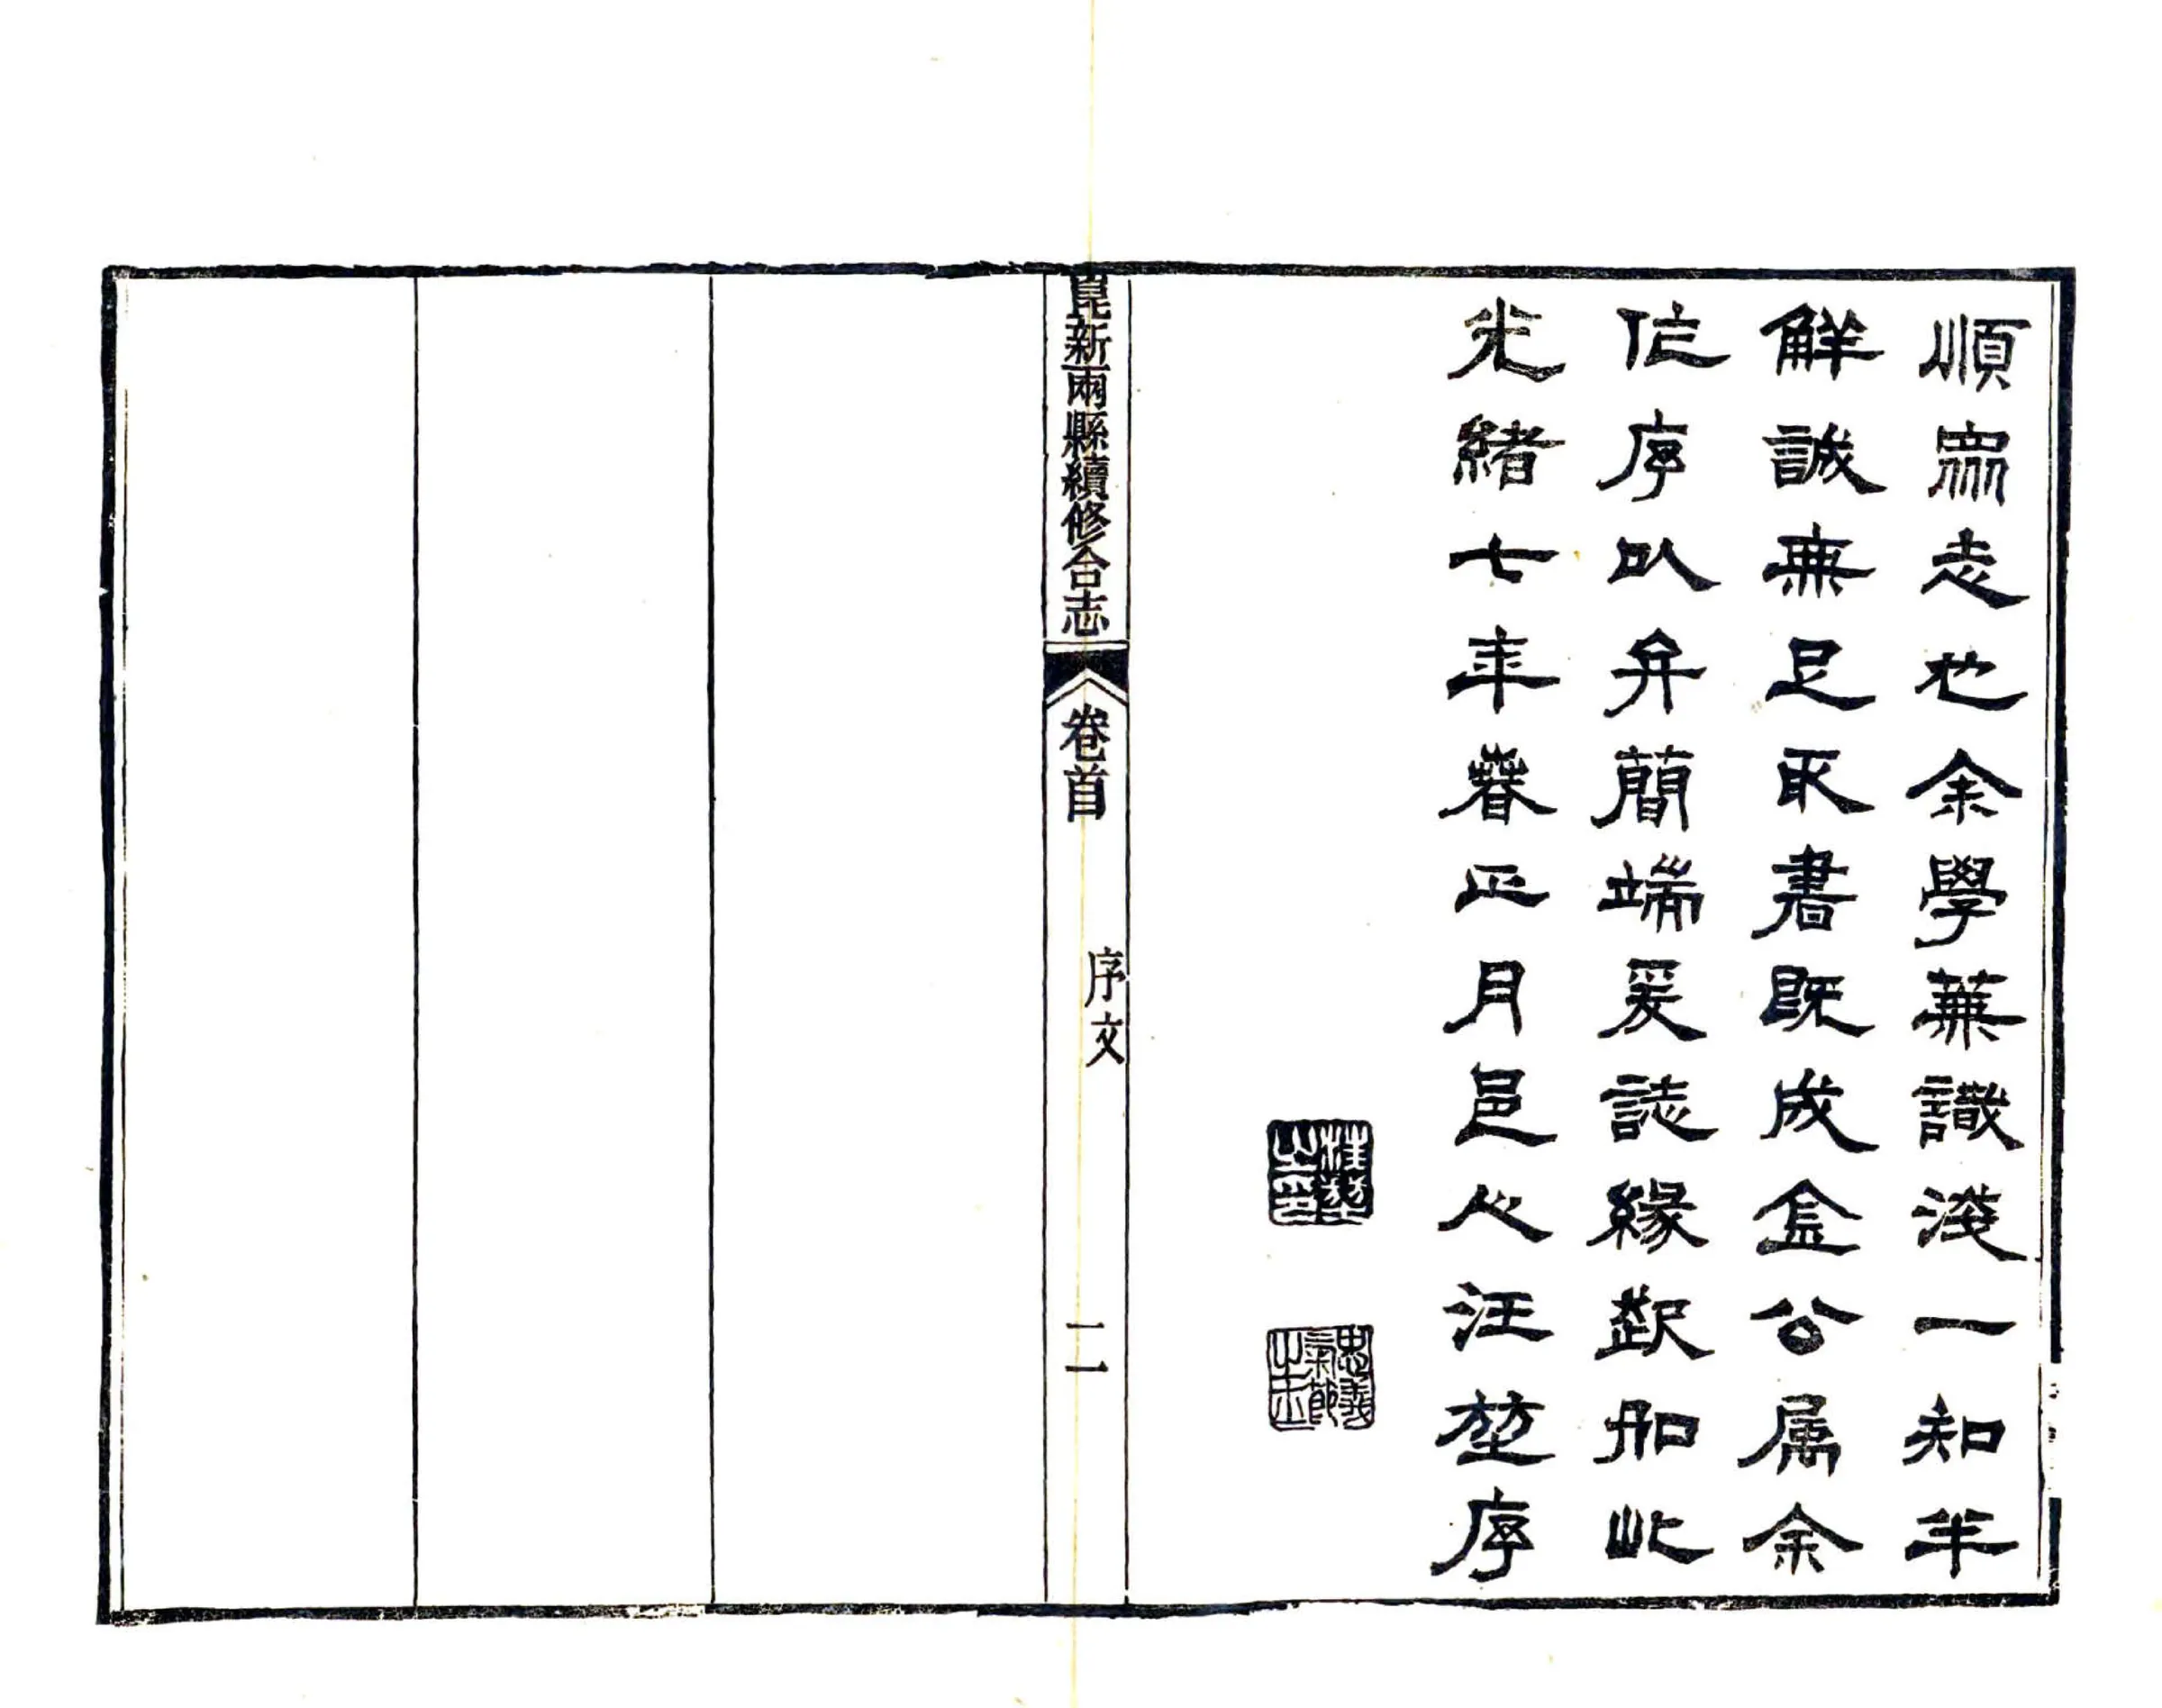 順眾志也余學蕪識淺一知半
解誠無足取書既成金公屬余
作序以弁簡端爰誌緣起如此
光緒七年春正月邑人汪堃序
汪堃之印
忠義氣節之士
崑新兩縣續修合志
卷首
序文
二